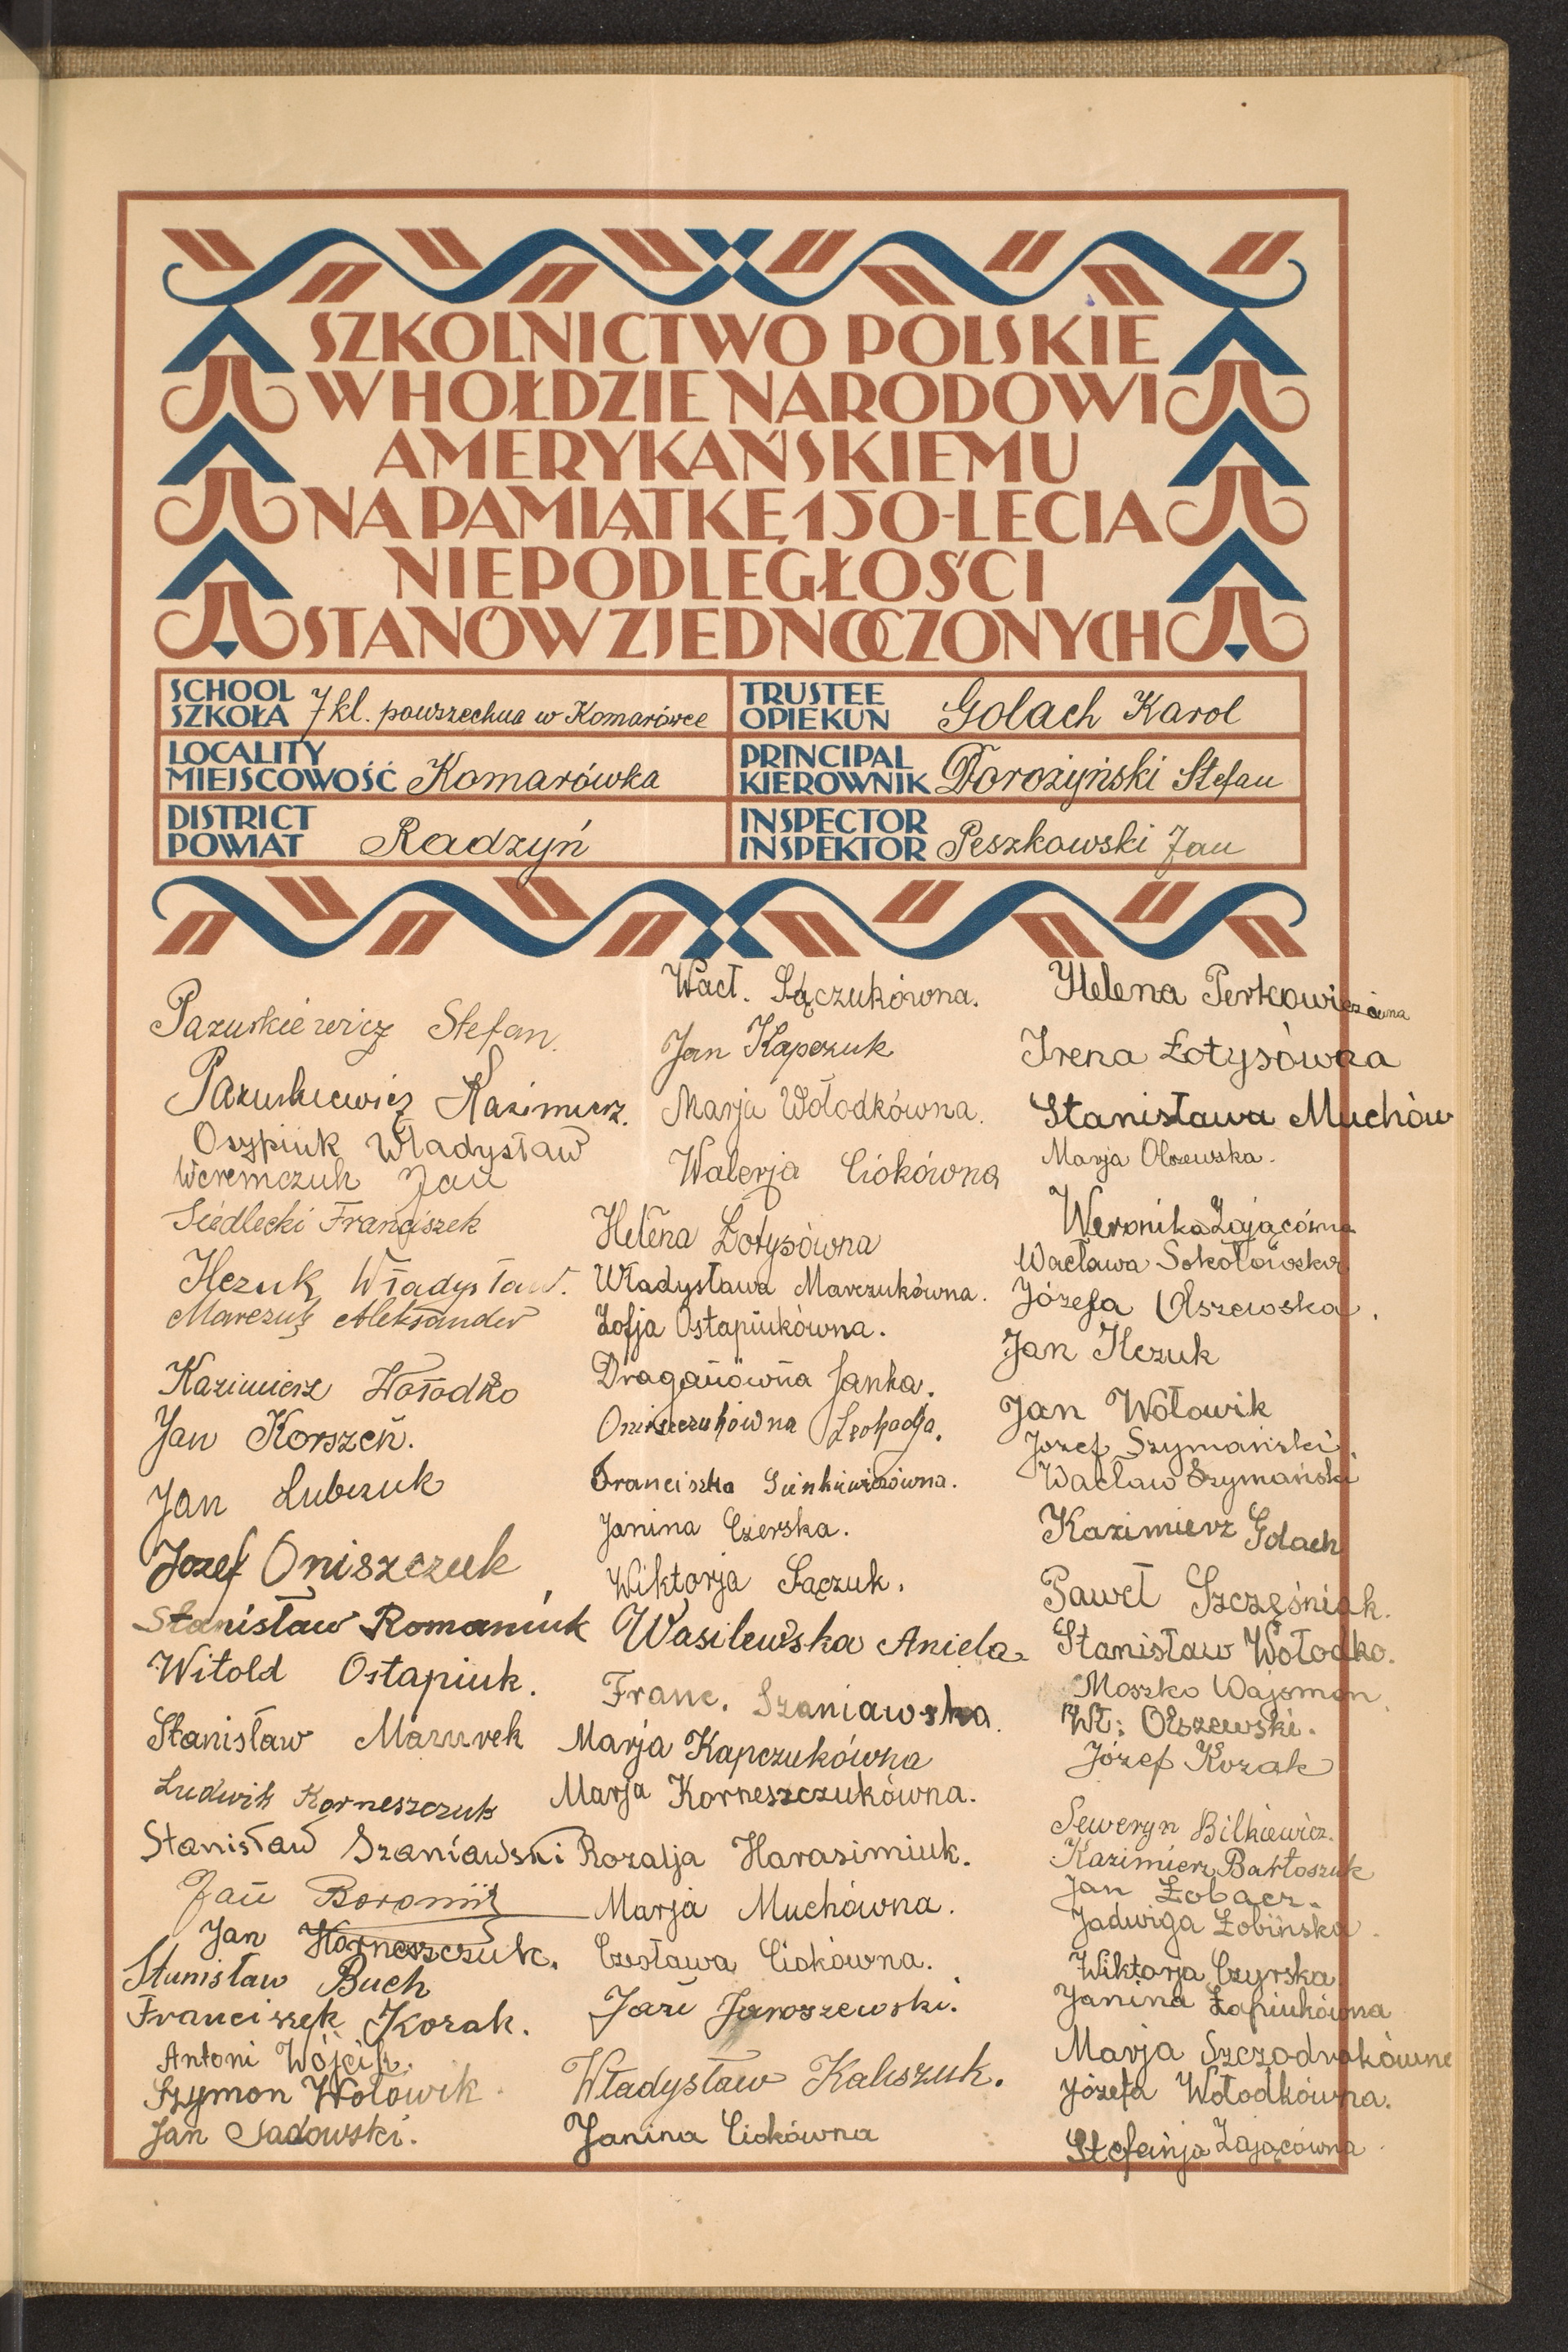 SZKOLNICTWO POLSKIE
W HOŁDZIE NARODOWI
AMERYKAŃSKIEMU
NA PAMIĄTKĘ 150-LECIA
NIEPODLEGŁOŚCI
STANÓW ZJEDNOCZONYCH
SCHOOL
SZKOŁA 7 kl. powszechna w Komarówce
LOCALITY
MIEJSCOWOŚĆ Komarówka
DISTRICT
POWIAT Radzyń
TRUSTEE
OPIEKUN Golach Karol
PRINCIPAL
KIEROWNIK Dorożyński Stefan
INSPECTOR
INSPEKTOR Peszkowski Jan
Pazuskiewicz Stefan.
Pazuskiewicz Kazimierz.
Osypiuk Władysław
Weremczuk Jan
Siedlecki Franciszek
Ilczuk Władysław.
Marczuk Aleksander
Kazimierz Wołodko
Jan Korszeń.
Jan Łubczuk
Jozef Oniszczuk
Stanisław Romaniuk
Witold Ostapiuk.
Stanisław Mazurek
Ludwik Korneszczuk
Stanisław Szaniawski
Jan
Jan Korneszczuk.
Stanisław Buch
Franciszek Kozak.
Antoni Wójcik.
Szymon Wołowik.
Jan Sadowski.
Wacł. Sączukówna.
Jan Kapczuk
Marja Wołodkówna.
Walerja Ciokówna
Helena Łotysówna
Władysława Marczukówna.
Zofja Ostapiukówna.
Draganówna Janka.
Oniszczukówna Leokadja.
Franciszka Sienkiewiczówna.
Janina Czerska.
Wiktorja Sączuk.
Wasilewska Aniela.
Franc. Szaniawska.
Marja Kapczukówna
Marja Korneszczukówna.
Rozalja Harasimiuk.
Marja Muchówna.
Czesława Ciokówna.
Jan Jaroszewski.
Władysław Kaliszuk.
Janina Ciokówna
Helena Perkowiczówna
Irena Łotysówna
Stanisława Muchów
Marja Olszewska.
Weronika Zającówna
Wacława Sokołowska
Józefa Olszewska.
Jan Ilczuk
Jan Wołowik
Jozef Szymański.
Wacław Szymański
Kazimierz Golach
Paweł Szczęśniak.
Stanisław Wołodko.
Moszko Wajsman.
Wł: Olszewski.
Józef Kozak
Seweryn Bilkiewicz.
Kazimierz Bartoszuk
Jan Łobacz.
Jadwiga Łobińska.
Wiktorja Czyrska
Janina Łapiukówna
Marja Szczodrakówne
Józefa Wołodkówna.
Stefanja Zającówna.